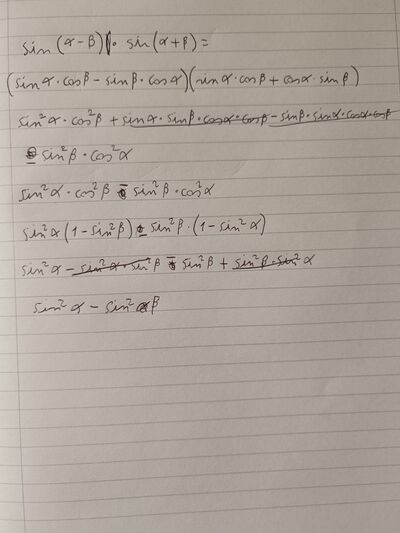 sin (α-β) · sin (α+β) =
(sin α · cos β - sin β · cos α)(sin α · cos β + cos α · sin β)
sin² α · cos² β + sin α · sin β · cos α · cos β - sin β · sin α · cos α · cos β
- sin² β · cos² α
sin² α · cos² β - sin² β · cos² α
sin² α (1 - sin² β) - sin² β · (1 - sin² α)
sin² α - sin² α · sin² β - sin² β + sin² β · sin² α
sin² α - sin² β